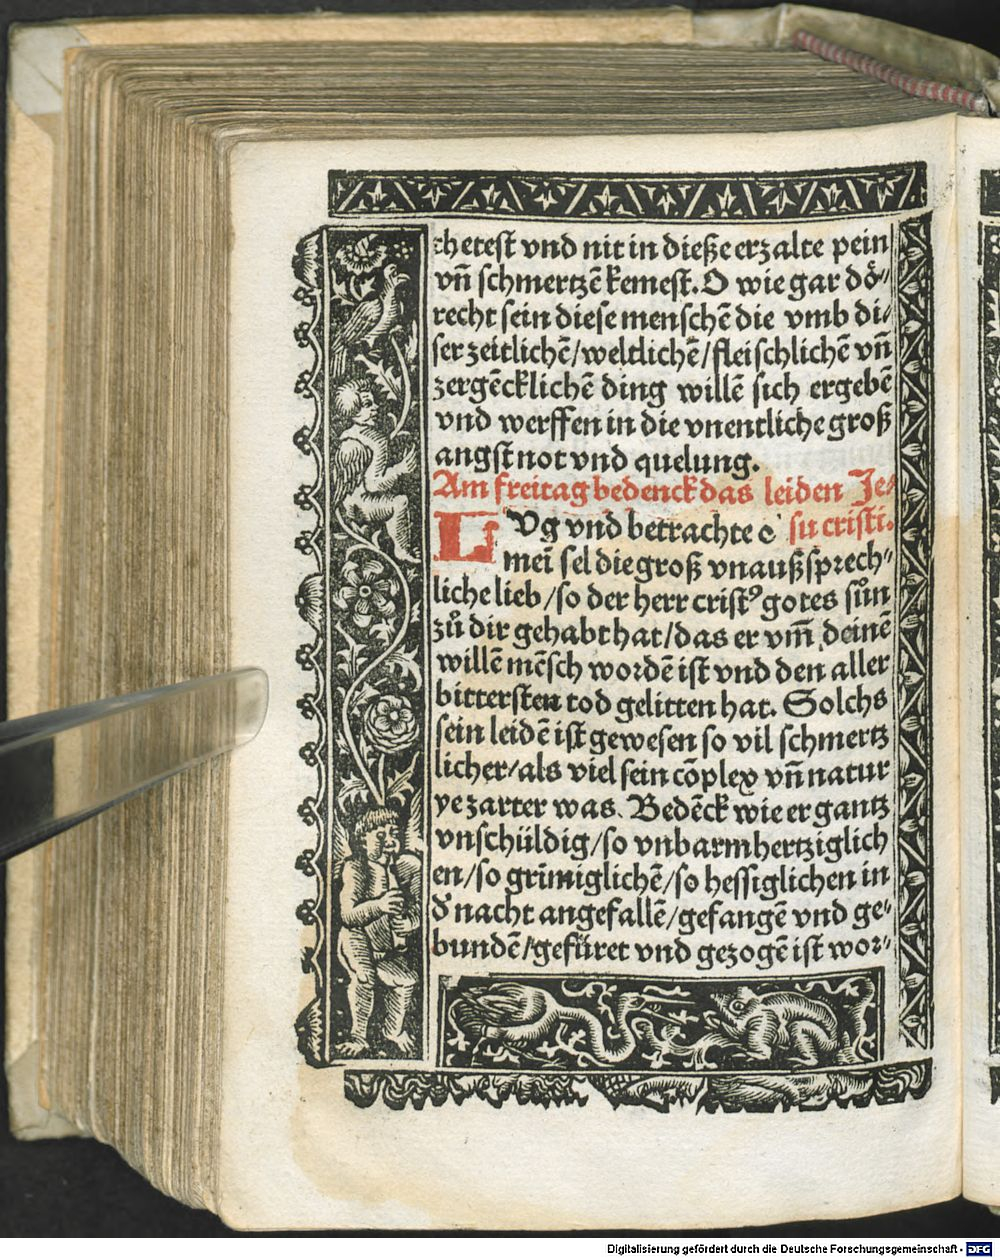 chetest vnd nit in dieße erzalte pein
vñ schmertzē kemest. O wie gar doͤ⸗
recht sein diese menschē die vmb di⸗
ser zeitlichē/weltlichē/fleischlichē vñ
zergēcklichē ding willē sich ergebē
vnd werffen in die vnentliche groß
angst not vnd quelung.
Am freitag bedenck das leiden Je⸗
su cristi.
LVg vnd betrachte o
mei sel die groß vnaußsprech⸗
liche lieb/so der herr cristꝰ gotes suͦn
zuͦ dir gehabt hat/das er vm̄ deinē
willē mēsch wordē ist vnd den aller
bittersten tod gelitten hat. Solchs
sein leidē ist gewesen so vil schmertz
licher/als viel sein cōplex vñ natur
ye zarter was. Bedēck wie er gantz
vnschüldig/so vnbarmhertziglich
en/so grīmiglichē/so hessiglichen in
d̓ nacht angefallē/gefangē vnd ge⸗
bundē/gefüret vnd gezogē ist wor⸗
Digitalisierung gefördert durch die Deutsche Forschungsgemeinschaft - DFG